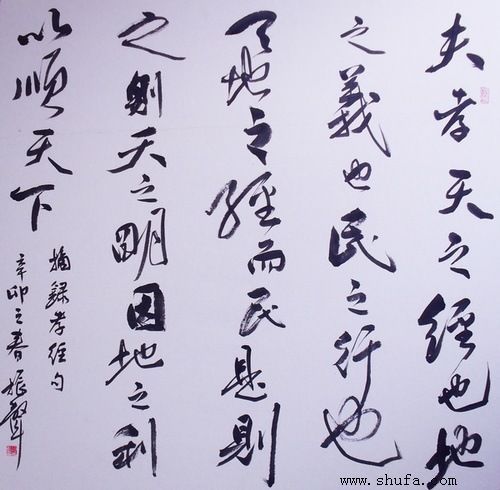 夫孝天之經也地
之義也民之行也
天地之經而民是則
之則天之明因地之利
以順天下
摘録孝经句
辛卯之春振聲
www.shufa.com